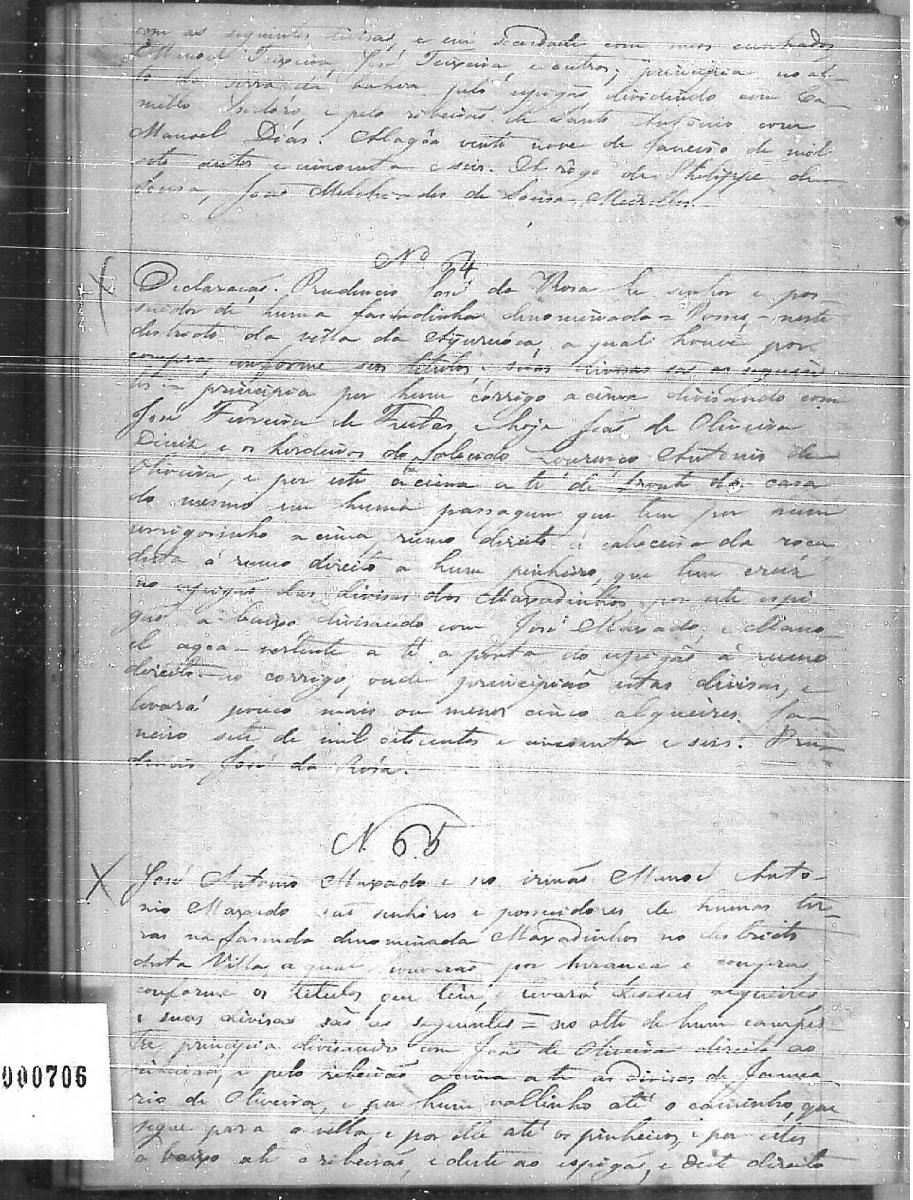 com as seguintes divisas, e em sociedade com meus cunhados
Manoel Teixeira, José Teixeira, e outros; principia no al-
to da serra da bahiva pelo espigão dividindo com Ca-
millo Isidoro e pelo ribeirão de Santo Antonio com
Manoel Dias. Alagôa vente nove de Janeiro de mil
oito centos e cincoenta e seis. A rôgo de Phelippe de
Sousa, João Melchiades de Sousa Meirelles
Nº 64
Declaração. Prudencio José da Rosa he senhor e pos-
suidor de huma fasendinha denominada = = neste
destricto da villa da Ayuruoca, a qual houve por
compra, conforme seos titulos: suas divisas são as seguin-
tes = principia por hum córrigo acima divisando com
José Ferreira de Freitas, e hoje João de Oliveira
Diniz, e os herdeiros do falecido Lourenço Antonio de
Oliveira, e por este acima a té de fronte da casa
do mesmo em huma passagem que tem por hum
corrigosinho acima rumo direito á cabeceira da roça
desta á rumo direito a hum pinheiro, que tem cruz
no espigão das divisas dos Maxadinhos, por este espi-
gão a baixo divisando com José Maxado, e Mano-
el agoa-vertente a té a ponta do espigão á rumo
direito ao corrigo, onde principião estas divisas, e
levará pouco mais ou menos cinco alqueires. Ja-
neiro sete de mil oitocentos e cincoenta e seis. Pru-
dencio José da Rosa.
N. 65
X José Antonio Maxado e seo irmão Manoel Anto-
nio Maxado são senhores e possuidores de humas ter-
ras na fasenda denominada Maxadinhos no destricto
desta Villa a qual houverão por herança e compras,
conforme os titulos que têm, e levará deseseis alqueires,
e suas divisas são as seguintes = no alto de hum campes-
tre principia divisando com João de Oliveira direito ao
ribeirão, e pelo ribeirão acima a té as divisas de Janua-
rio de Oliveira, e por hum vallinho até o caminho, que
segue para a villa e por elle até os pinheiros, e por estes
a baixo até o ribeirão, e deste ao espigão, e deste direito
000706